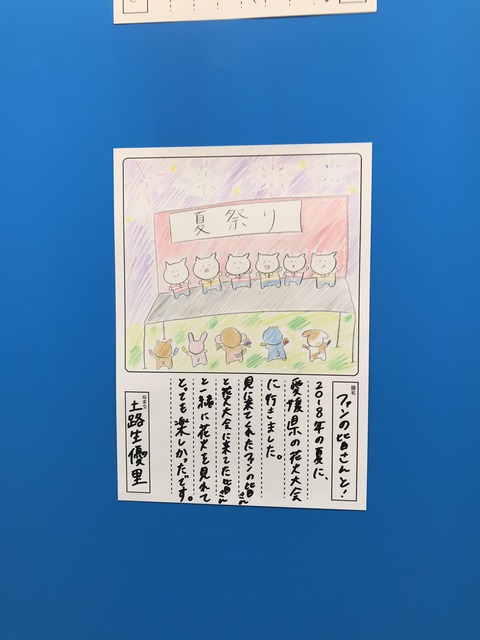 夏祭り
題名
ファンの皆さんと！
2018年の夏に、
愛媛県の花火大会
に行きました。
見に来てくれたファンの皆さん
と花火大会に来てた皆さん
と一緒に花火を見れて
とっても楽しかったです。
なまえ
土路生優里